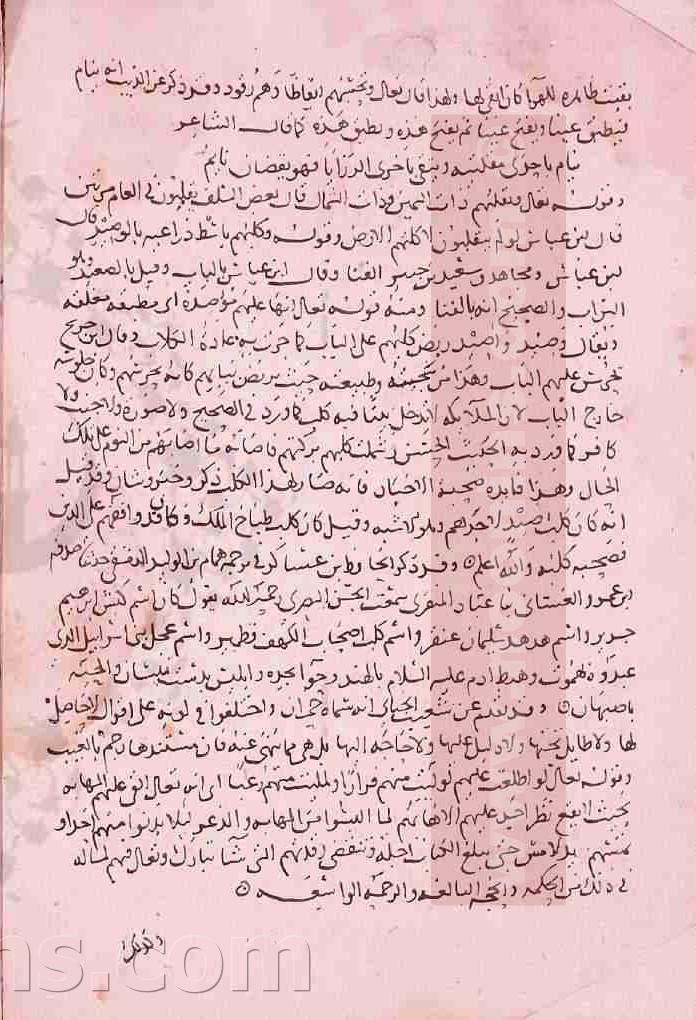 بقيت ظاهره للهوا كان ابقى لها ولهذا قال تعالى وتحسبهم ايقاظا وهم رقود وقد ذكر عن الذيب انه ينام
فيطبق عينا ويفتح عينا ثم يفتح هذه ويطبق هذه كما قال الشاعر
ينام باحدى مقلتيه ويتقي باخرى الرزايا فهو يقضان نايم
وقوله تعالى ونقلبهم ذات اليمين وذات الشمال قال بعض السلف يقلبون في العام مرتين
قال ابن عباس لو لم يقلبوا لاكلتهم الارض وقوله وكلبهم باسط ذراعيه بالوصيد قال
ابن عباس ومجاهد وسعيد بن جبير الفنا وقال ابن عباس بالباب وقيل بالصعيد وهو
التراب والصحيح انه بالفنا ومنه قوله تعالى انها عليهم مؤصدة اي مطبقه مغلقه
ويقال وصيد واصيد ربض كلبهم على الباب كما جرت به عادة الكلاب وقال ابن جريج
يحرس عليهم الباب وهذا من سجيته وطبيعته حيث يربض ببابهم كانه يحرسهم وكان جلوسه
خارج الباب لان الملايكه لا تدخل بيتا فيه كلب كما ورد في الصحيح ولا صورة ولا جنب ولا
كافر كما ورد به الحديث الحسن وشملت كلبهم بركتهم فاصابه ما اصابهم من النوم على تلك
الحال وهذا فايده صحبة الاخيار فانه صار لهذا الكلب ذكر وخبر وشان وقد قيل
انه كان كلب صيد لاحدهم وهو الاشبه وقيل كان كلب طباخ الملك وكان قد وافقهم على الدين
فصحبه كلبه والله اعلم وقد ذكر الحافظ ابن عساكر في ترجمة همام بن الوليد الدمشقي حدثنا صدقه
ابن عمرو الغساني نا عباد المنقري سمعت الحسن البصري رحمه الله يقول كان اسم كبش ابرهيم
جرير واسم هدهد سليمان عنقز واسم كلب اصحاب الكهف قطمير واسم عجل بني اسراييل الذي
عبدوه بهموت وهبط ادم عليه السلام بالهند وحوا بجده وابليس بدست ميسان والحيه
باصبهان وقد تقدم عن شعيب الجباي انه سماه حمران واختلفوا في لونه على اقوال لا حاصل
لها ولا طايل تحتها ولا دليل عليها ولا حاجه اليها بل هي مما ينهى عنه فان مستندها رجم بالغيب
وقوله تعالى لو اطلعت عليهم لوليت منهم فرارا ولمليت منهم رعبا اي انه تعالى القى عليهم المهابه
بحيث لا يقع نظر احد عليهم الا هابهم لما البسوا من المهابه والذعر ليلا يدنوا منهم احد او
تمسهم يد لامس حتى يبلغ الكتاب اجله وتنقضي رقدتهم التي شا تبارك وتعالى فيهم لماله
في ذلك من الحكمه والحجه البالغه والرحمه الواسعه
ns.com